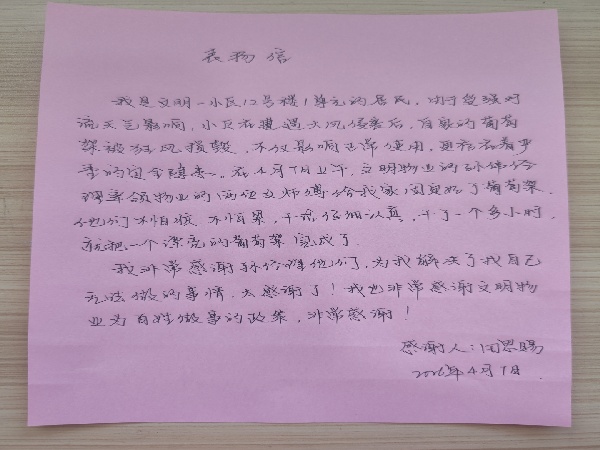 表扬信
我是文明一小区12号楼1单元的居民,由于受强对
流天气影响,小区在遭遇大风侵袭后,自家的葡萄
架被狂风摧毁,不仅影响正常使用,更存在着严
重的安全隐患。在4月7日上午,文明物业的孙伟
经理带领物业的两位师傅给我家间架好了葡萄架,
他们不怕脏、不怕累,干活仔细认真,干了一个多小时,
就把一个漂亮的葡萄架完成了。
我非常感谢孙经理他们,为我解决了我自己
无法做的事情,太感谢了!我也非常感谢文明物
业为百姓做事的政策,非常感谢!
感谢人:闫恩赐
2026年4月7日